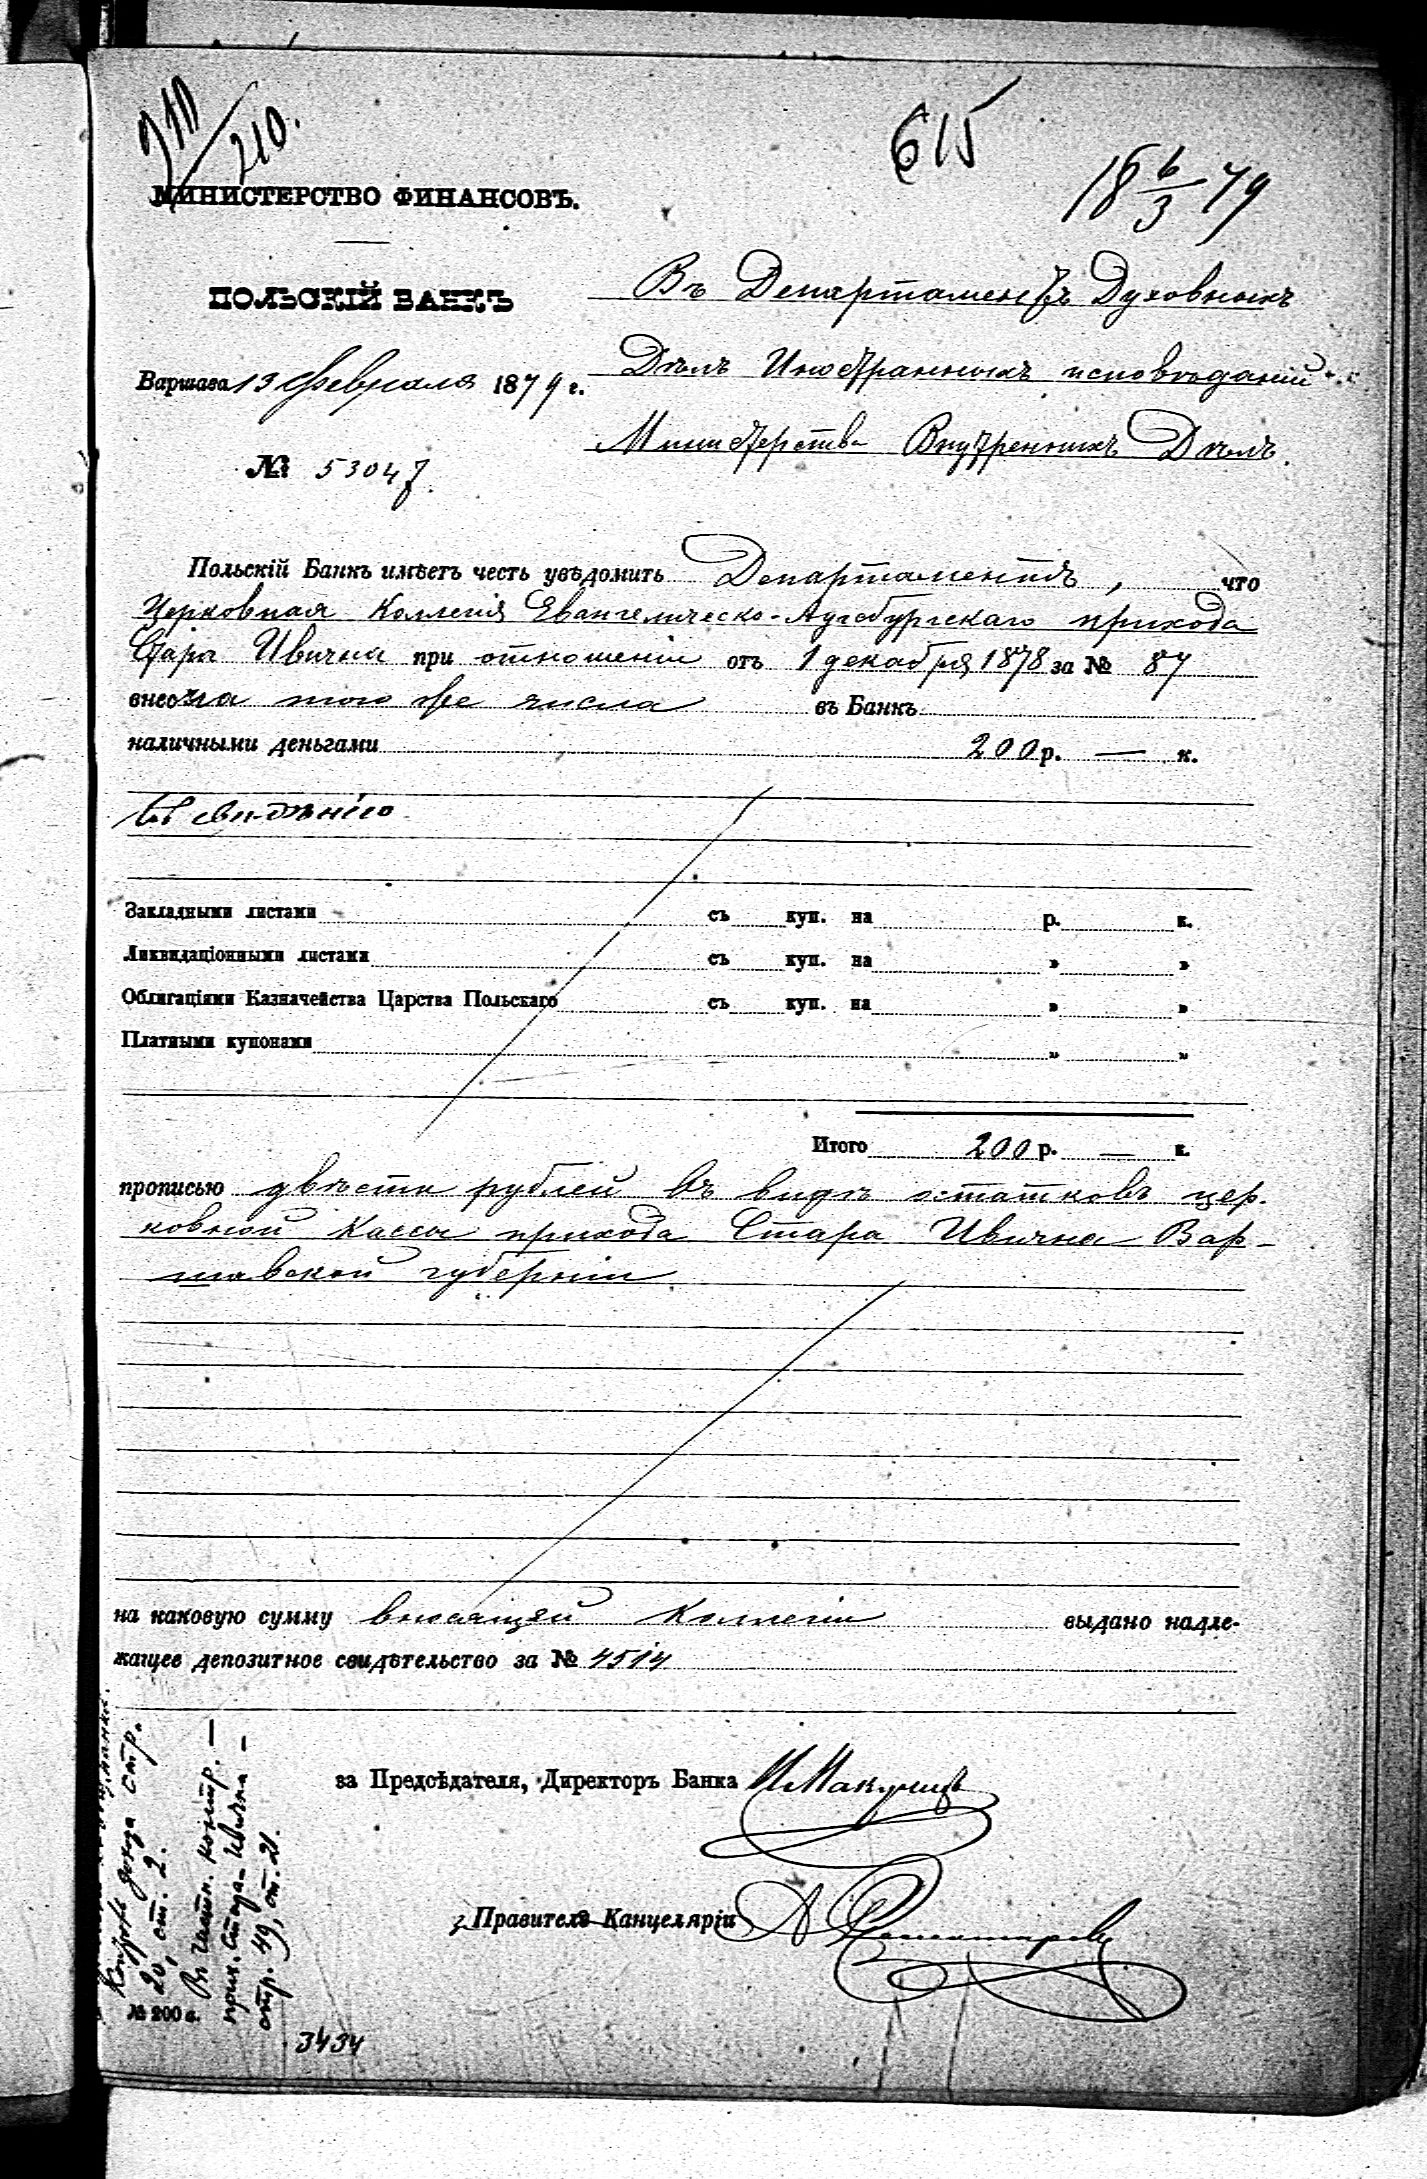 210.
615
18 6/3 79
МИНИСТЕРСТВО ФИНАНСОВЪ.
ПОЛЬСКІЙ БАНКЪ
Варшава 13 Февраля 1879 г.
№ 53047.
Въ Департаментъ Духовныхъ
Дѣлъ Иностранныхъ исповѣданій
Министерства Внутреннихъ Дѣлъ.
Польскій Банкъ имѣетъ честь увѣдомить Департаментъ, что
Церковная Коллегія Евангелическо-Аугсбургскаго прихода
Стара Ивична при отношеніи отъ 1 декабря 1878 за № 87
внесла того же числа въ Банкъ
наличными деньгами 200 р. — к.
Къ свѣдѣнію
Закладными листами съ куп. на р. к.
Ликвидаціонными листами съ куп. на " "
Облигаціями Казначейства Царства Польскаго съ куп. на " "
Платными купонами " "
Итого 200 р. — к.
прописью двѣсти рублей въ видѣ остатковъ цер-
ковной кассы прихода Стара Ивична Вар-
шавской губерніи
на каковую сумму вносящей Коллегіи выдано надле-
жащее депозитное свидѣтельство за № 4514
за Предсѣдателя, Директоръ Банка
з. Правителя Канцеляріи
стр.
20, ст. 2.
Въ частн. контр. —
прих. Стара-Ивична —
стр. 49, ст. 21.
№ 200 а.
3434